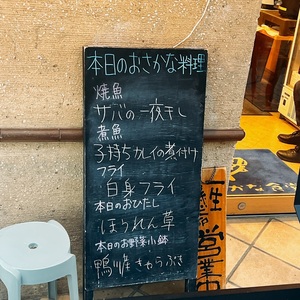 本日のおさかな料理
焼魚
サバの一夜干し
煮魚
子持ちカレイの煮付け
フライ
白身フライ
本日のおひたし
ほうれん草
本日のお野菜小鉢
きゃらぶき
営業中